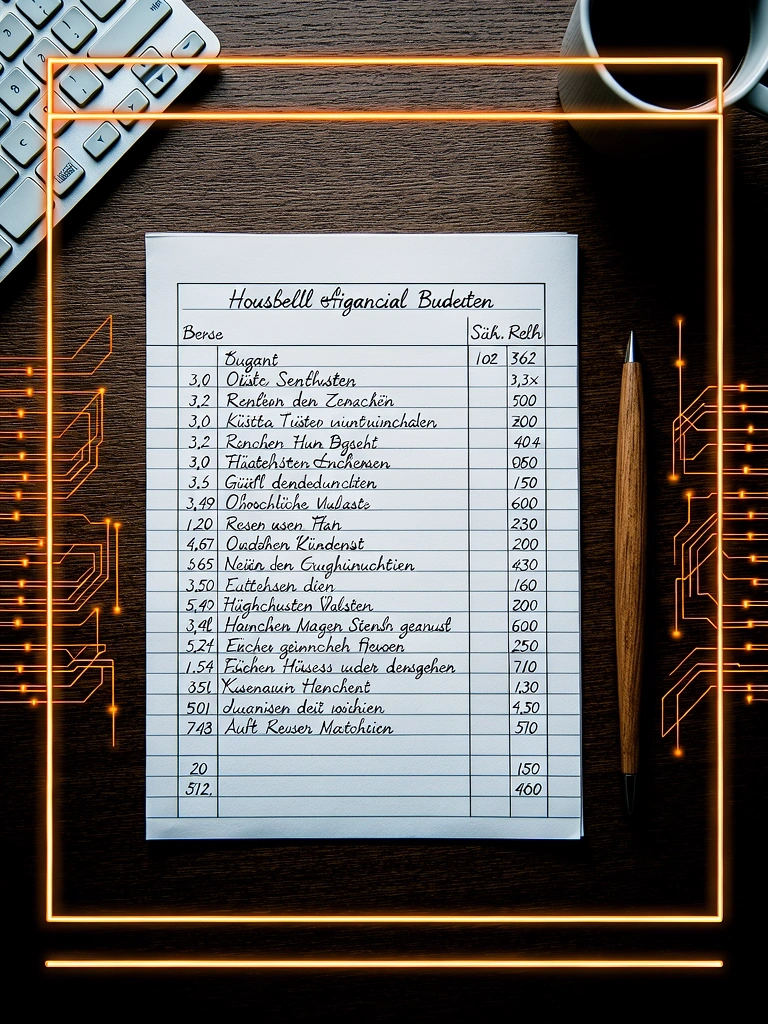 Housbelll efigancial Budeiten
Berse Säh. Relh
Bugant 102 362
3,0 Oliste Senthvsten 3,3x
3,2 Renteon den Zenachën 500
3,0 Küstta Tüsteo vuntuimchalen 200
3,2 Ranchen Hun Bgseht 404
3,0 Fläatehsten Enchemen 060
3.5 Güifl dendeduncliten 150
3,49 Ohoschliche Vulaste 600
1.20 Resen usen Flan 230
4,67 Oudahen Kündenst 200
565 Neiün den Gughinuchtien 430
3,50 Euttehsen dien 160
5,40 Hüghchusten Valsten 200
3,4l Hainchen Magen Stensh geanust 600
5,24 Eücher geinncheh flewen 250
1.54 Füichen Hüsess uuder densgehen 710
351 Kusenauın Henchent 1.30
501 duuanisen deit voichien 4.50
743 Auft Reuser Matohtien 510
20 150
512. 460